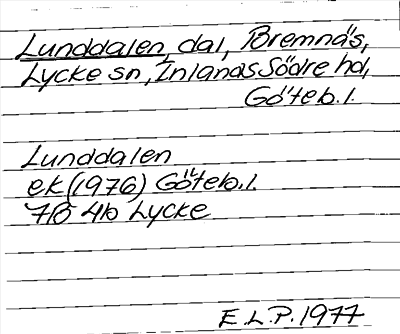 Lunddalen, dal, Bremnäs,
Lycke sn, Inlands Södre hd,
Göteb. l.
Lunddalen
ek (1976) Göteb. l.
7B 4b Lycke
E.L.P. 1977